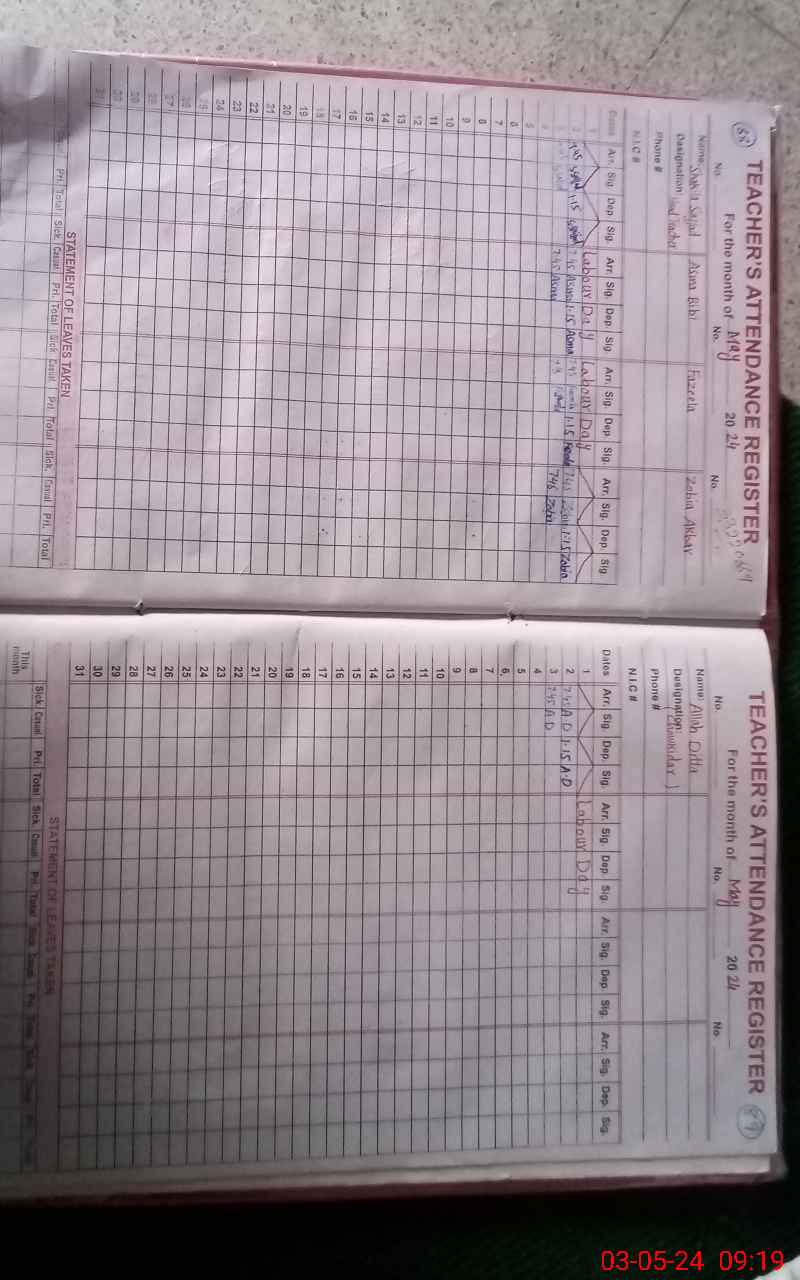 88
TEACHER'S ATTENDANCE REGISTER
For the month of May 2024
No. No. No.
Name: Sajjad Asma Bibi Fazeela Zobia Akbar
Designation: Head Teacher
Phone #
N.I.C #
Dates Arr. Sig. Dep. Sig. Arr. Sig. Dep. Sig. Arr. Sig. Dep. Sig. Arr. Sig. Dep. Sig.
1 Labour Day Labour Day
2 7:45 1:15 7:45 Asma 1:15 Asma 7:45 1:15 7:45 Zobia 1:15 Zobia
3 7:45 Asma 7:45 Zobia
4
5
6
7
8
9
10
11
12
13
14
15
16
17
18
19
20
21
22
23
24
25
26
27
28
29
30
31
STATEMENT OF LEAVES TAKEN
Casual Pri. Total Sick. Casual Pri. Total Sick. Casual Pri. Total Sick. Casual Pri. Total
TEACHER'S ATTENDANCE REGISTER
89
For the month of May 2024
No. No. No.
Name: Allah Ditta
Designation: (Chowkidar)
Phone #
N.I.C #
Dates Arr. Sig. Dep. Sig. Arr. Sig. Dep. Sig. Arr. Sig. Dep. Sig. Arr. Sig. Dep. Sig.
1 Labour Day
2 7:45 A.D 1:15 A.D
3 7:45 A.D
4
5
6
7
8
9
10
11
12
13
14
15
16
17
18
19
20
21
22
23
24
25
26
27
28
29
30
31
STATEMENT OF LEAVES TAKEN
Sick. Casual Pri. Total Sick. Casual Pri. Total Sick. Casual Pri.
This month
03-05-24 09:19